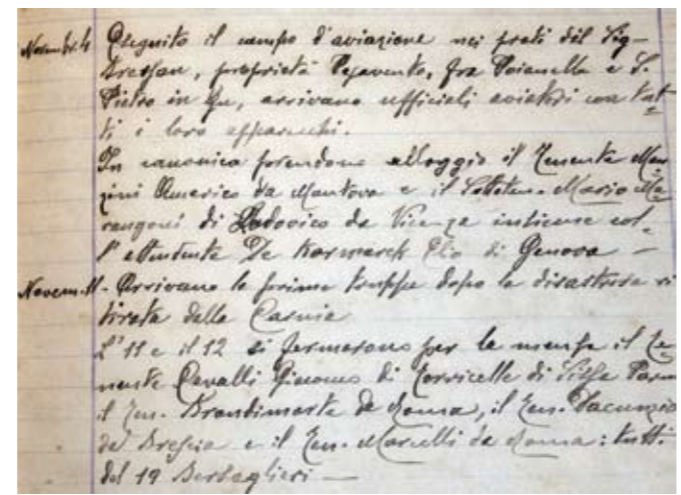 Novembr. 4 Eseguito il campo d'aviazione nei prati del Sig-
Bressan, proprietà Pesavento, fra Poianella e S.
Pietro in Gu, arrivano ufficiali aviatori con tut-
ti i loro apparecchi.
In canonica prendono alloggio il Tenente Man-
zini Americo da Mantova e il Sottoten. Mario Ma-
rangoni di Lodovico da Vicenza insieme col-
l'attendente De Kormarck Elio di Genova —
Novem. 11 - Arrivano le prime truppe dopo la disastrosa ri
tirata dalla Carnia
L'11 e il 12 si fermarono per la mensa il Te
nente Cavalli Giacomo di Torricelle di
il Ten. Brandimarte da Roma, il Ten.
da Brescia e il Ten. Marcelli da Roma: tutti
del 19 Bersaglieri —